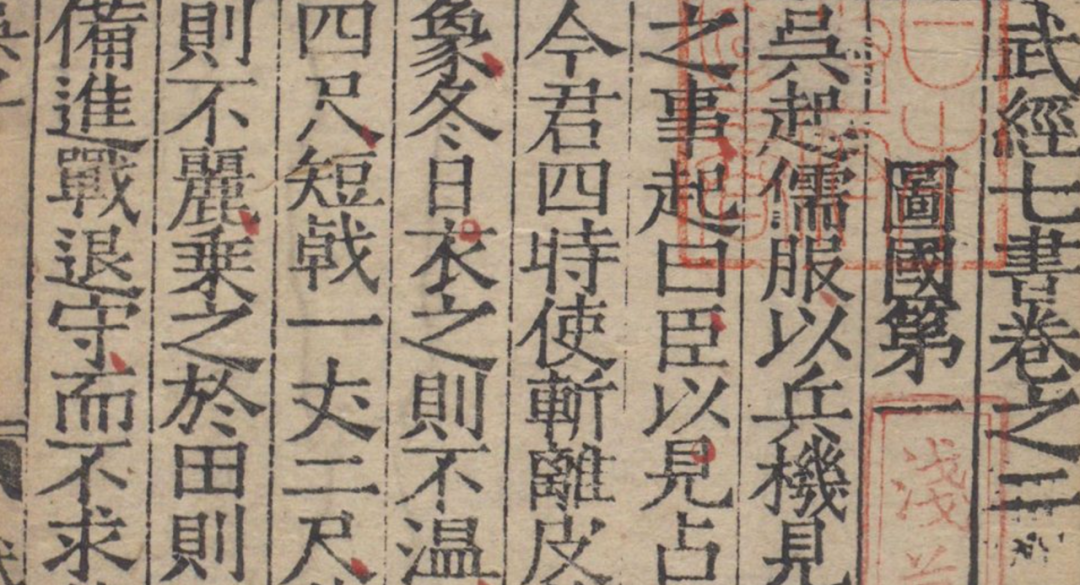 武經七書卷之二
圖國第一
吳起儒服以兵機見
之事起曰臣以見占
今君四時使斬離皮
象冬日衣之則不温
四尺短戟一丈二尺
則不麗乗之於田則
備進戰退守而不求
淺